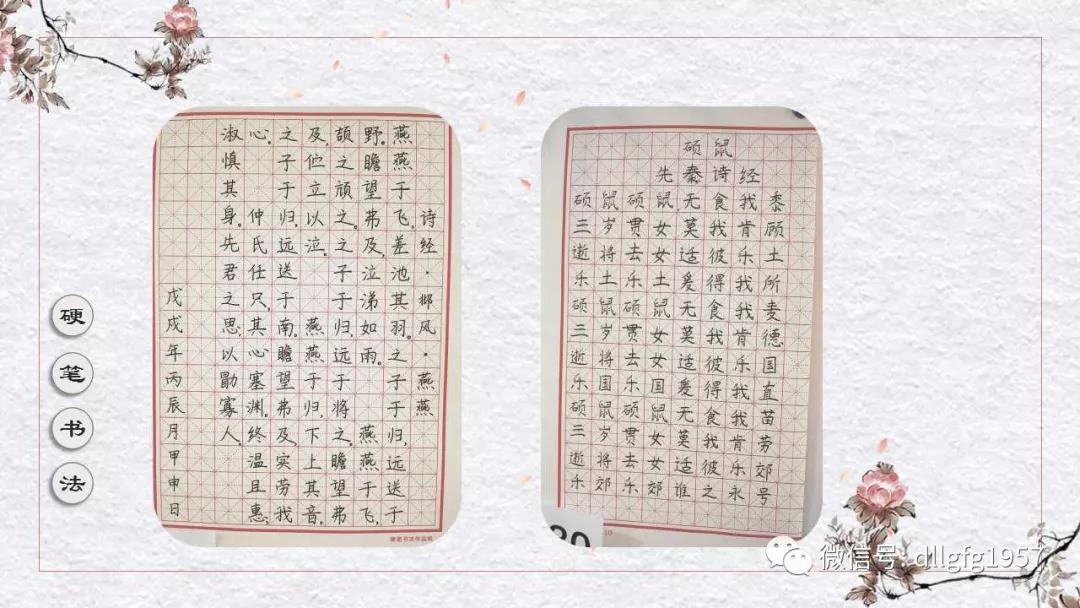 硬笔书法
诗经·邶风·燕燕
燕燕于飞,差池其羽。之子于归,远送于
野。瞻望弗及,泣涕如雨。燕燕于飞,
颉之颃之。之子于归,远于将之。瞻望弗
及,伫立以泣。燕燕于归,下上其音。
之子于归,远送于南。瞻望弗及,实劳我
心。仲氏任只,其心塞渊。终温且惠,
淑慎其身。先君之思,以勖寡人。
戊戌年丙辰月甲申日
硕鼠
先秦诗经
硕鼠硕鼠无食我黍
三岁贯女莫我肯顾
逝将去女适彼乐土
乐土乐土爰得我所
硕鼠硕鼠无食我麦
三岁贯女莫我肯德
逝将去女适彼乐国
乐国乐国爰得我直
硕鼠硕鼠无食我苗
三岁贯女莫我肯劳
逝将去女适彼乐郊
乐郊乐郊谁之永号
微信号: dllgfg1957